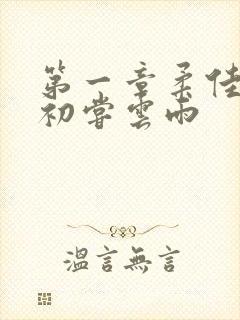 第一章柔佳
初尝雲雨
溫言無言